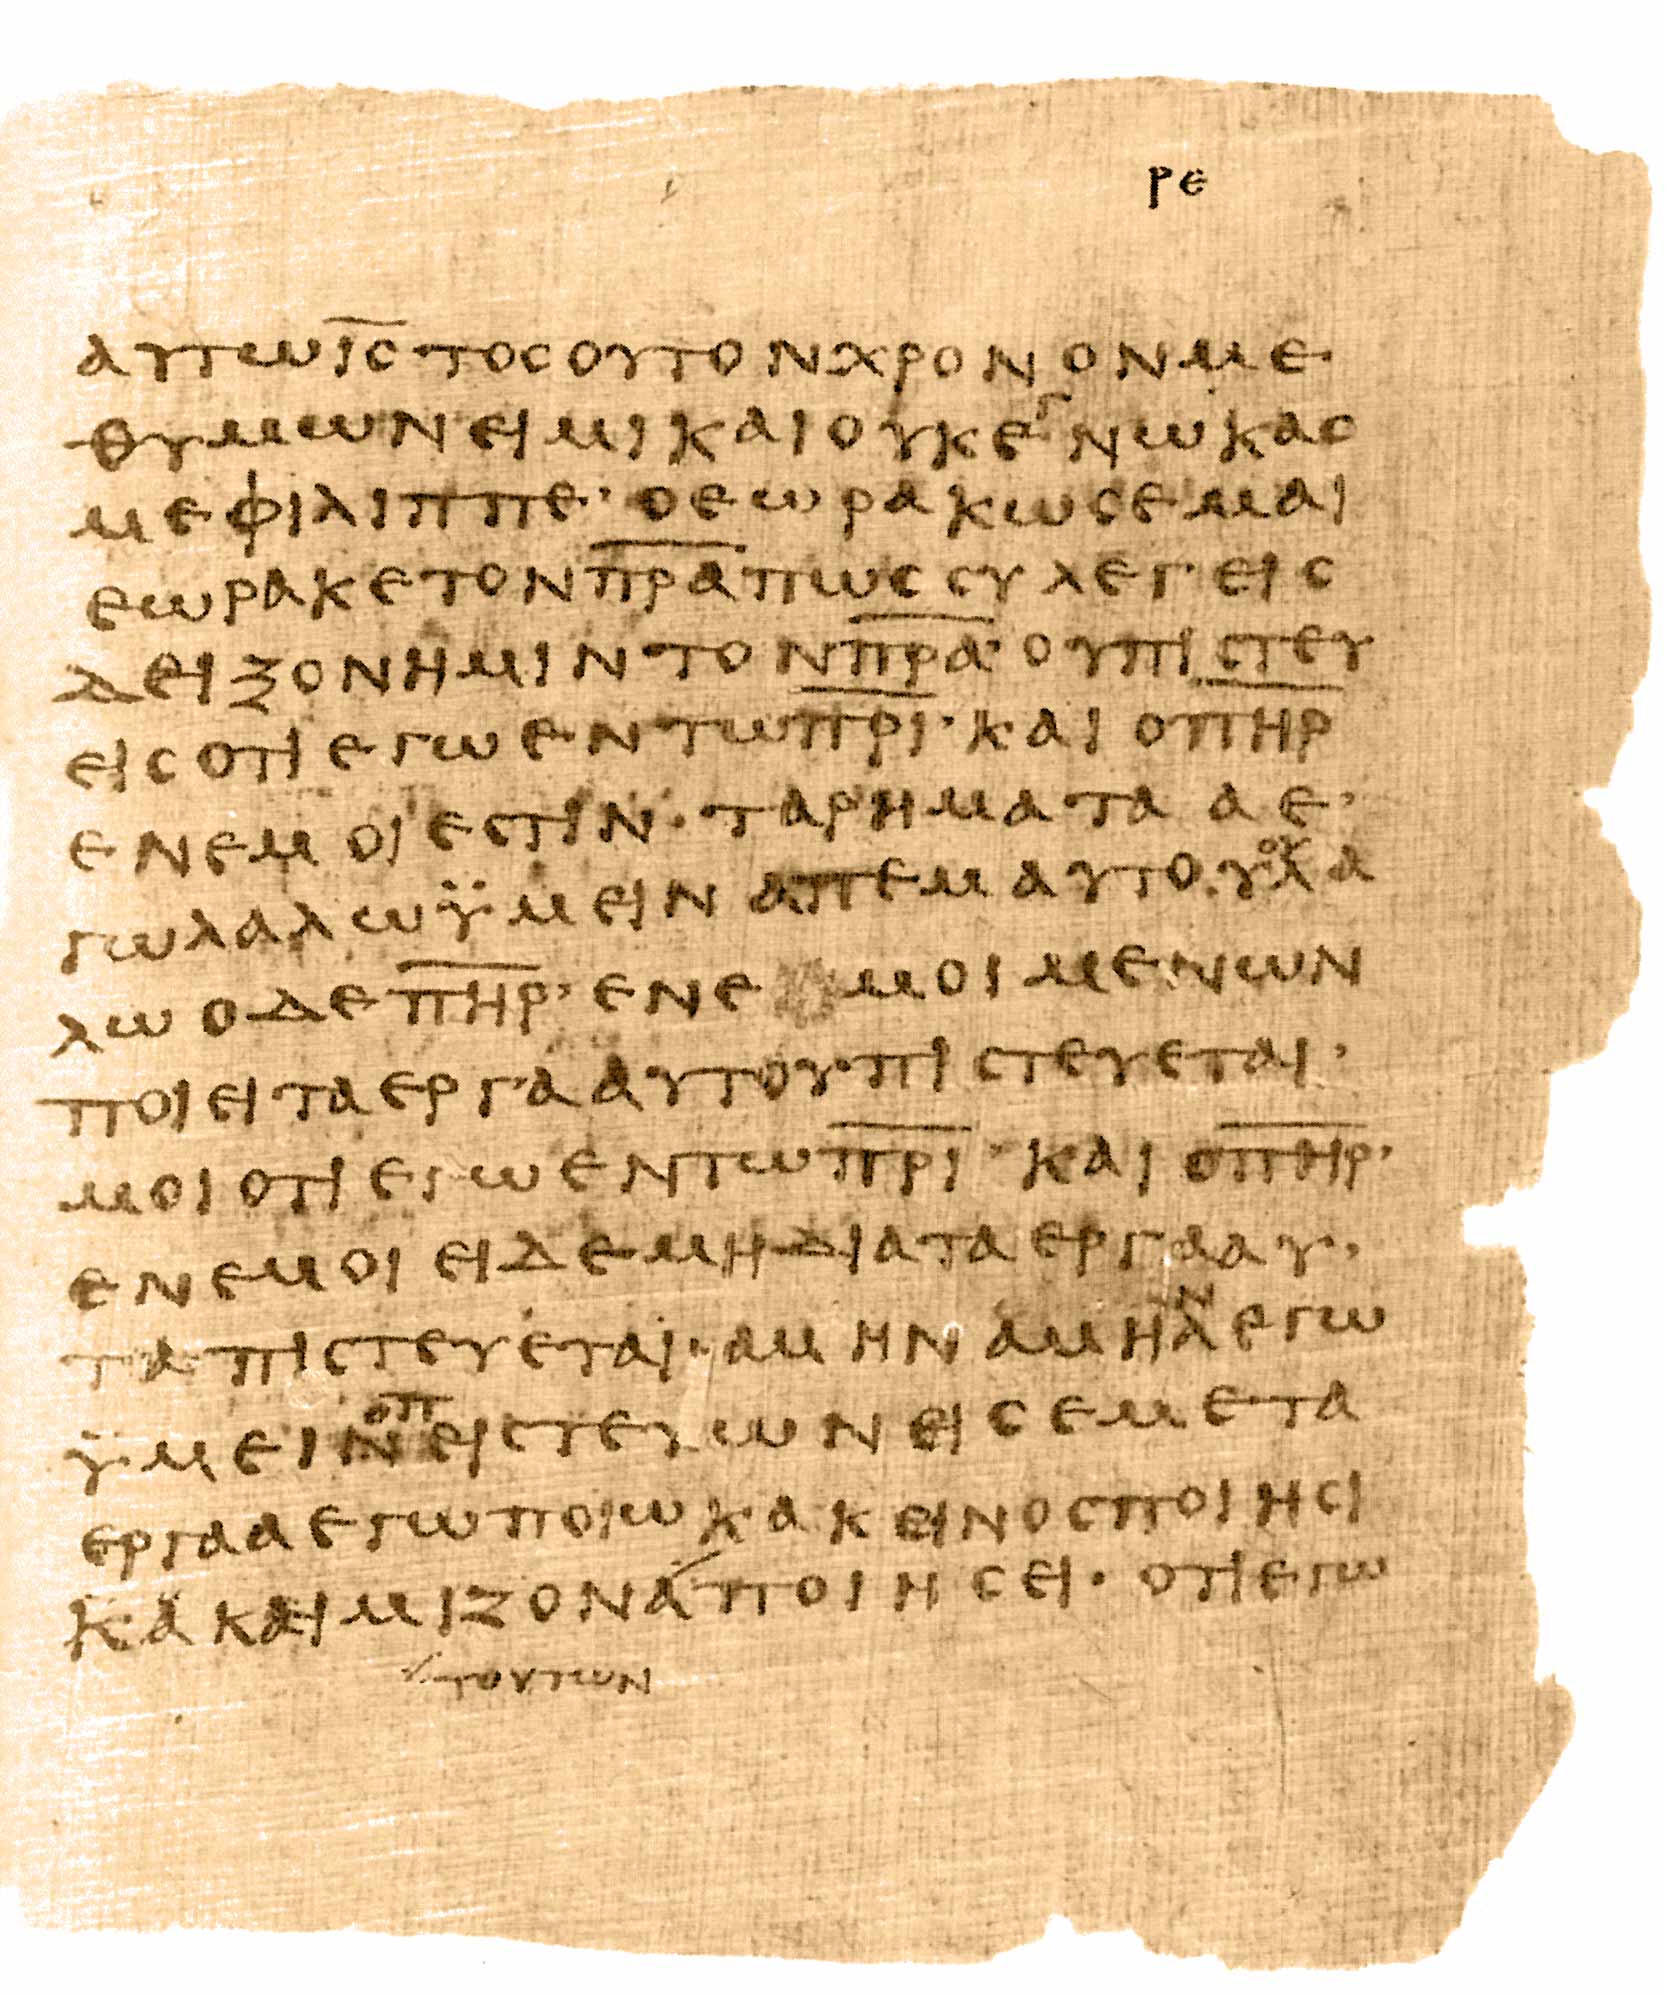 ρε
αυτωι̅ς̅τοσουτονχρονονμε
θυμωνειμικαιουκεγνωκας
μεφιλιππε· οεωρακωσεμαι
εωρακετονπ̅ρ̅α̅πωςσυλεγεις
δειξονημιντονπ̅ρ̅α̅· ουπιστευ
εισοτιεγωεντωπ̅ρ̅ι̅· καιοπ̅η̅ρ̅
ενεμοιεστιν· ταρηματααε·
γωλαλωϋμειναπεμαυτο.υουλα
λωοδεπ̅η̅ρ̅· ενε μοιμενων
ποιειταεργααυτου·πιστευεται·
μοιοτιεγωεντωπ̅ρ̅ι̅· καιοπ̅η̅ρ̅·
ενεμοιειδεμηδιαταεργααυ·
ταπιστευεται· αμηναμηνλεγω
ϋμεινοπειστευωνεισεμετα
εργααεγωποιωκακεινοσποιησι
κακαειμιζονα⸍ποιησει· οτιεγω
⸍τουτων